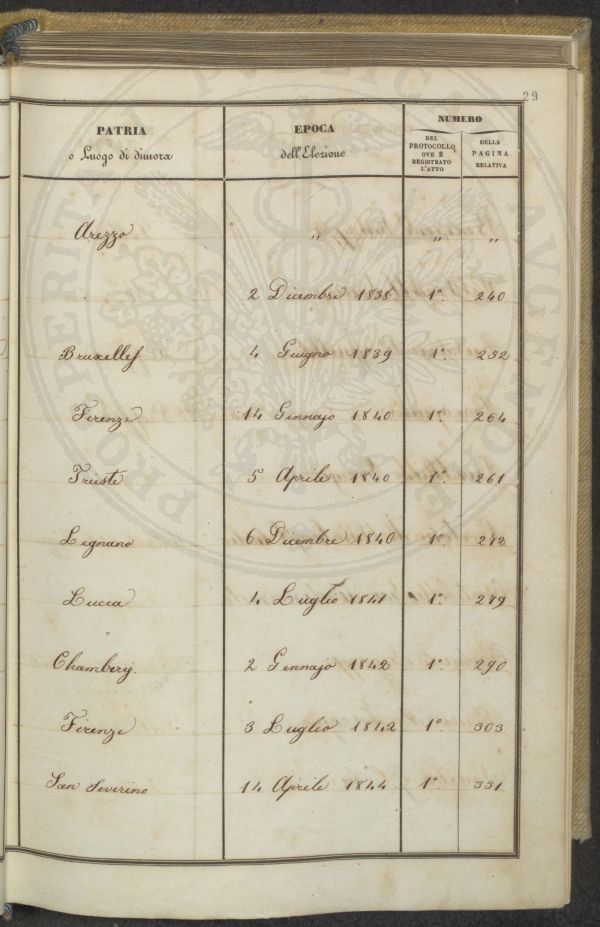 29
PATRIA
o Luogo di dimora
EPOCA
dell'Elezione
NUMERO
DEL
PROTOCOLLO
OVE È
REGISTRATO
L'ATTO
DELLA
PAGINA
RELATIVA
Arezzo " " "
2 Dicembre 1838 1° 240
Bruxelles 4 Giugno 1839 1° 252
Firenze 14 Gennajo 1840 1° 264
Trieste 5 Aprile 1840 1° 261
Legnano 6 Dicembre 1840 1° 272
Lucca 4 Luglio 1841 1° 279
Chambery. 2 Gennajo 1842 1° 290
Firenze 3 Luglio 1842 1° 303
San Severino 14 Aprile 1844 1° 331